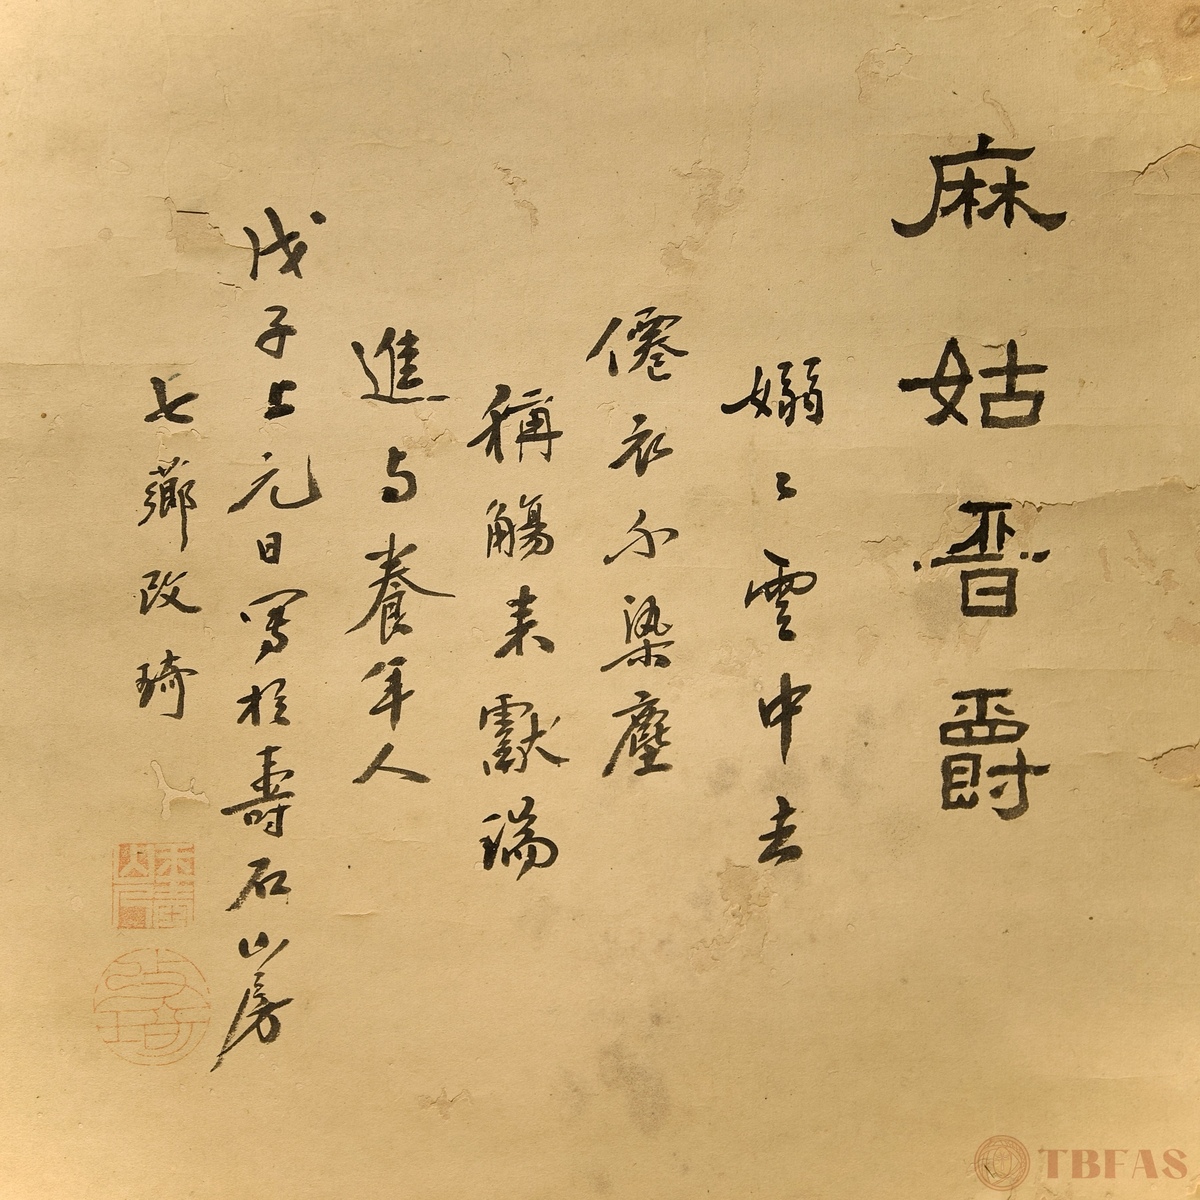 麻姑晉爵
嫋〻雲中去
僊衣不染塵
稱觴来獻瑞
進与養年人
戊子上元日寫於壽石山房
七薌改琦
改琦
TBFAS